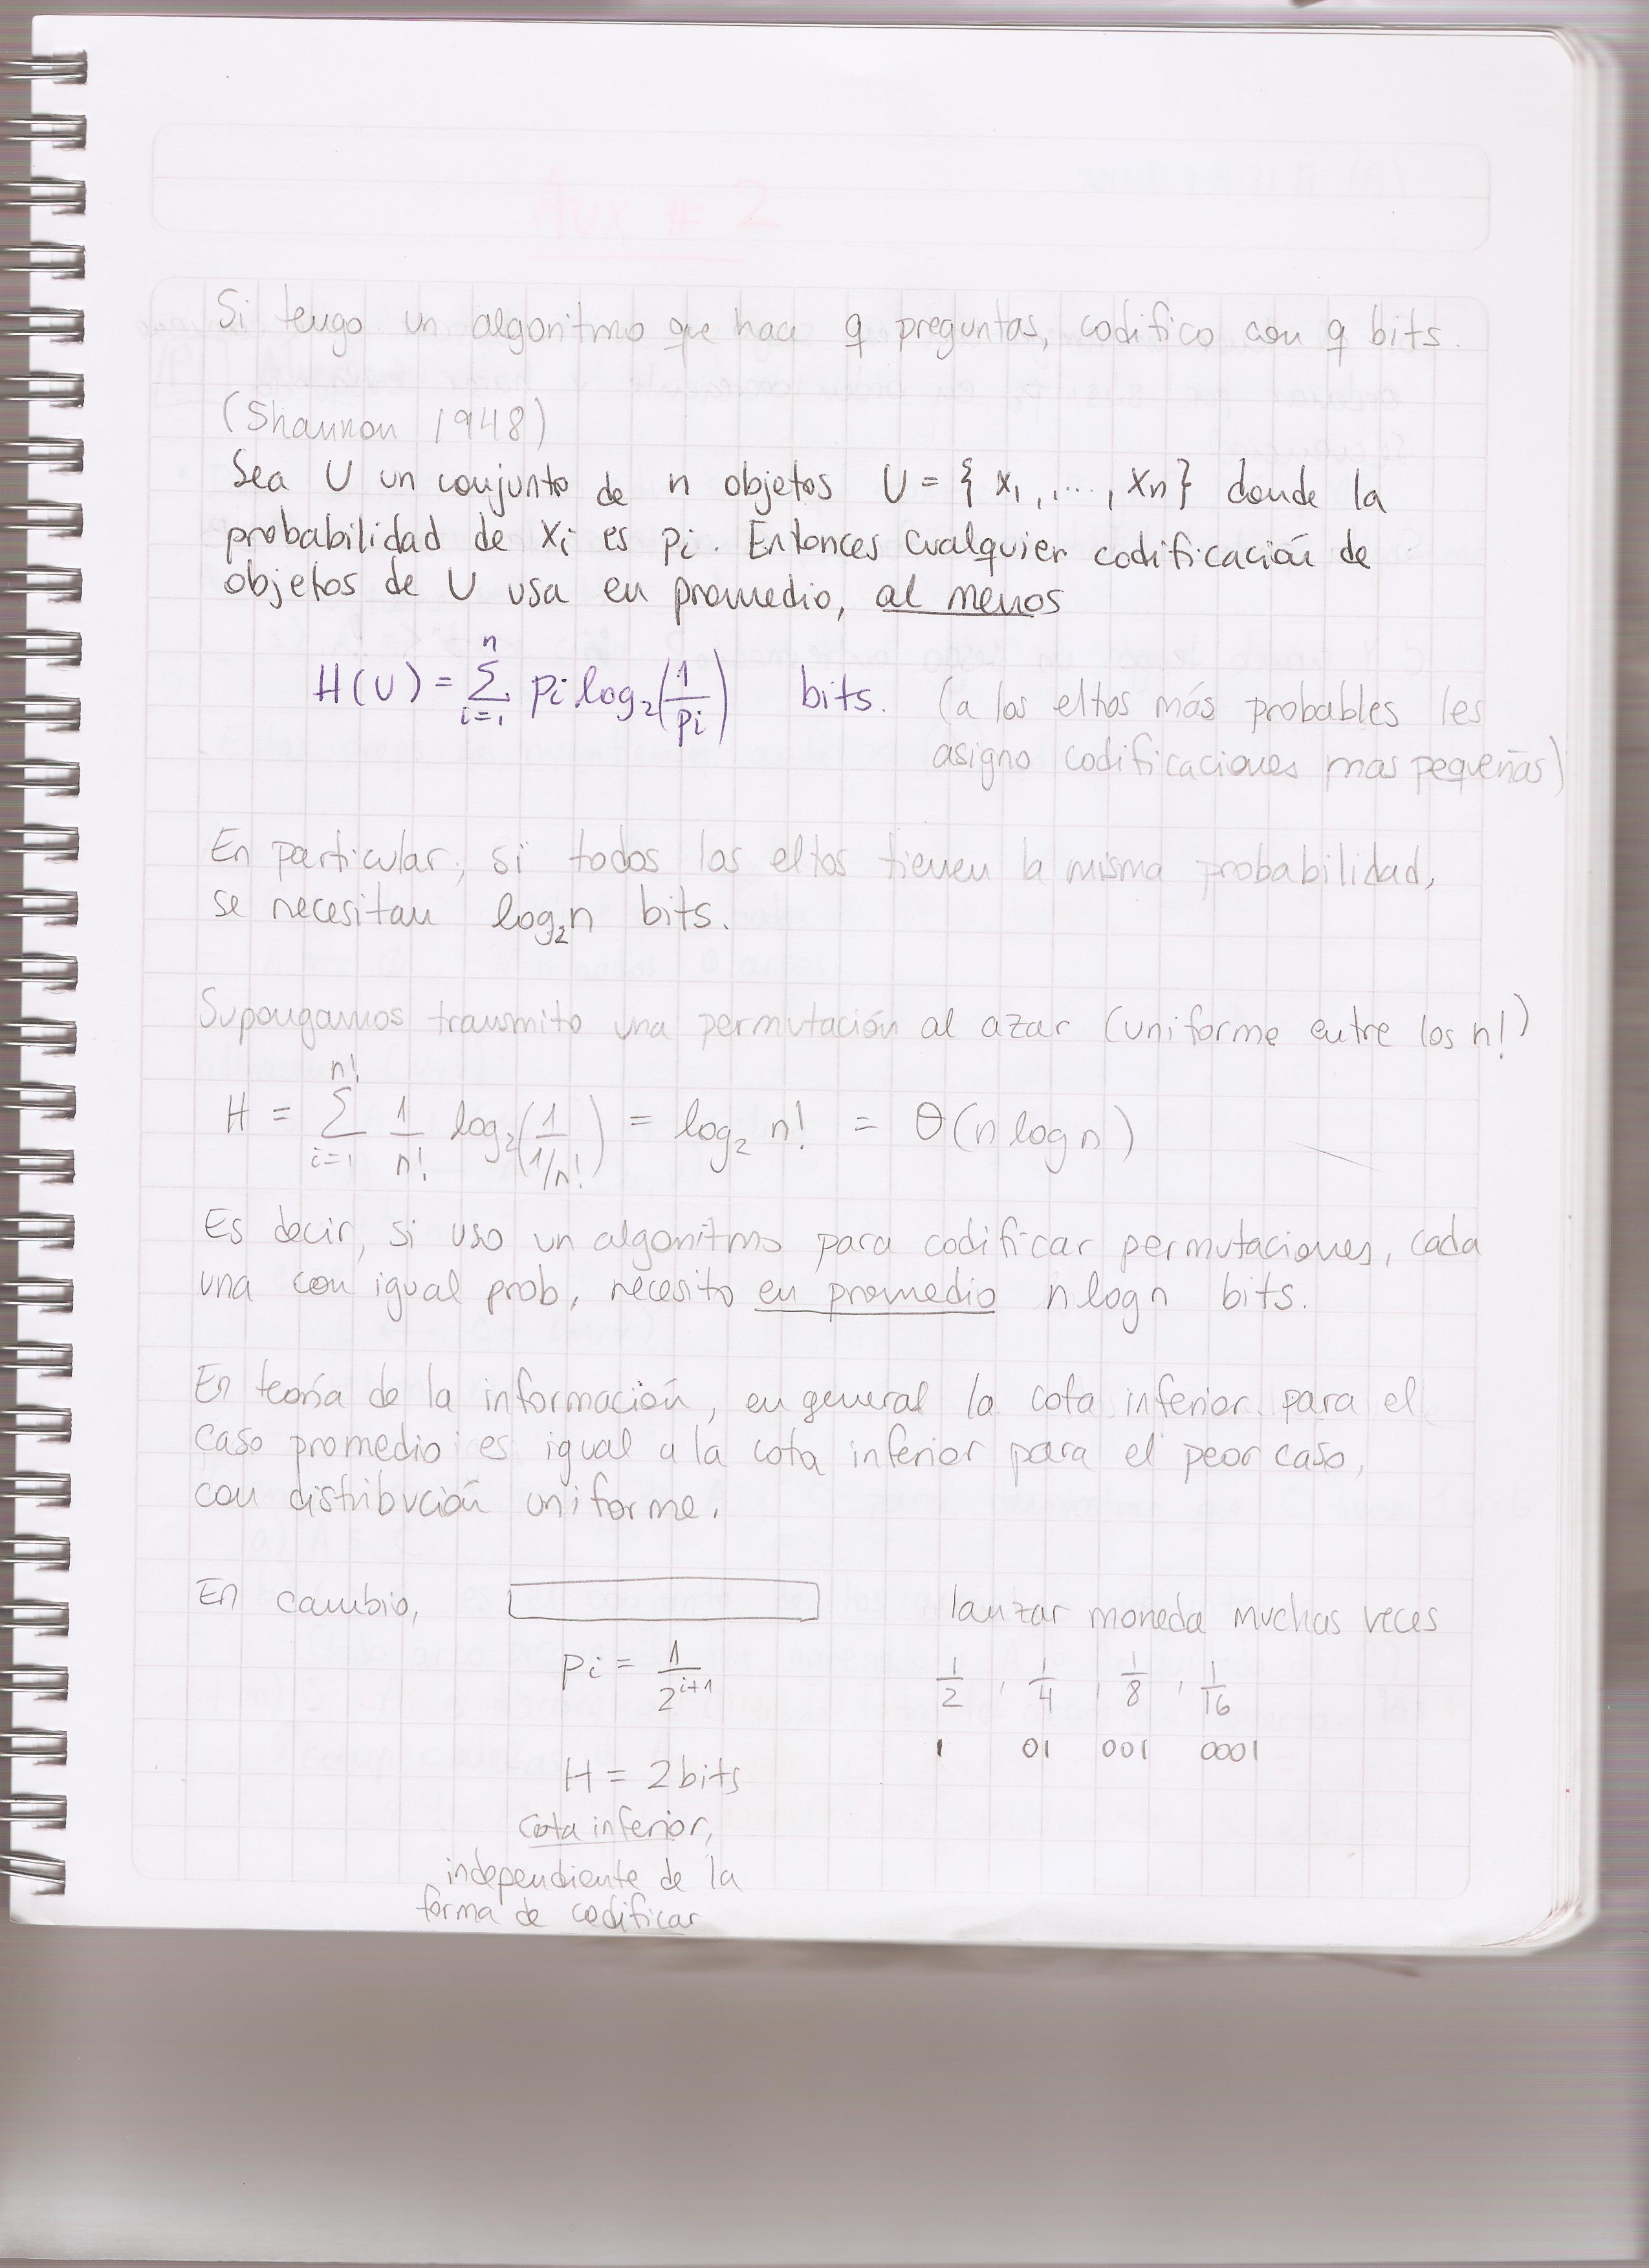 Aux # 2
Si tengo un algoritmo que hace q preguntas, codifico con q bits.
(Shannon 1948)
Sea U un conjunto de n objetos U = { x₁, ..., xn} donde la
probabilidad de xi es pi. Entonces cualquier codificación de
objetos de U usa en promedio, al menos
H(U) = ∑_{i=1}^{n} pi log₂(1/pi) bits. (a los eltos más probables les
asigno codificaciones mas pequeñas)
En particular, si todos los eltos tienen la misma probabilidad,
se necesitan log₂n bits.
Supongamos transmito una permutación al azar (uniforme entre los n!)
H = ∑_{i=1}^{n!} 1/n! log₂(1/(1/n!)) = log₂ n! = Θ(n log n)
Es decir, si uso un algoritmo para codificar permutaciones, cada
una con igual prob, necesito en promedio n log n bits.
En teoría de la información, en general la cota inferior para el
caso promedio es igual a la cota inferior para el peor caso,
con distribución uniforme.
En cambio, lanzar moneda muchas veces
pi = 1/2^{i+1} 1/2, 1/4, 1/8, 1/16
1 01 001 0001
H = 2 bits
cota inferior,
independiente de la
forma de codificar